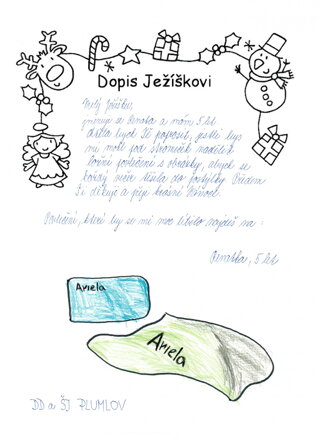 Dopis Ježíškovi
Milý Ježíšku,
jmenuji se Renata a mám 5 let
chtěla bych Tě poprosit, jestli bys
mi mohl pod stromeček nadělit
ložní povlečení s obrázky, abych se
každý večer těšila do postýlky. Předem
Ti děkuji a přeji krásné Vánoce.
Povlečení, které by se mi moc líbilo najdeš na:
Renatka, 5 let
Ariela
Ariela
DD a ŠJ PLUMLOV